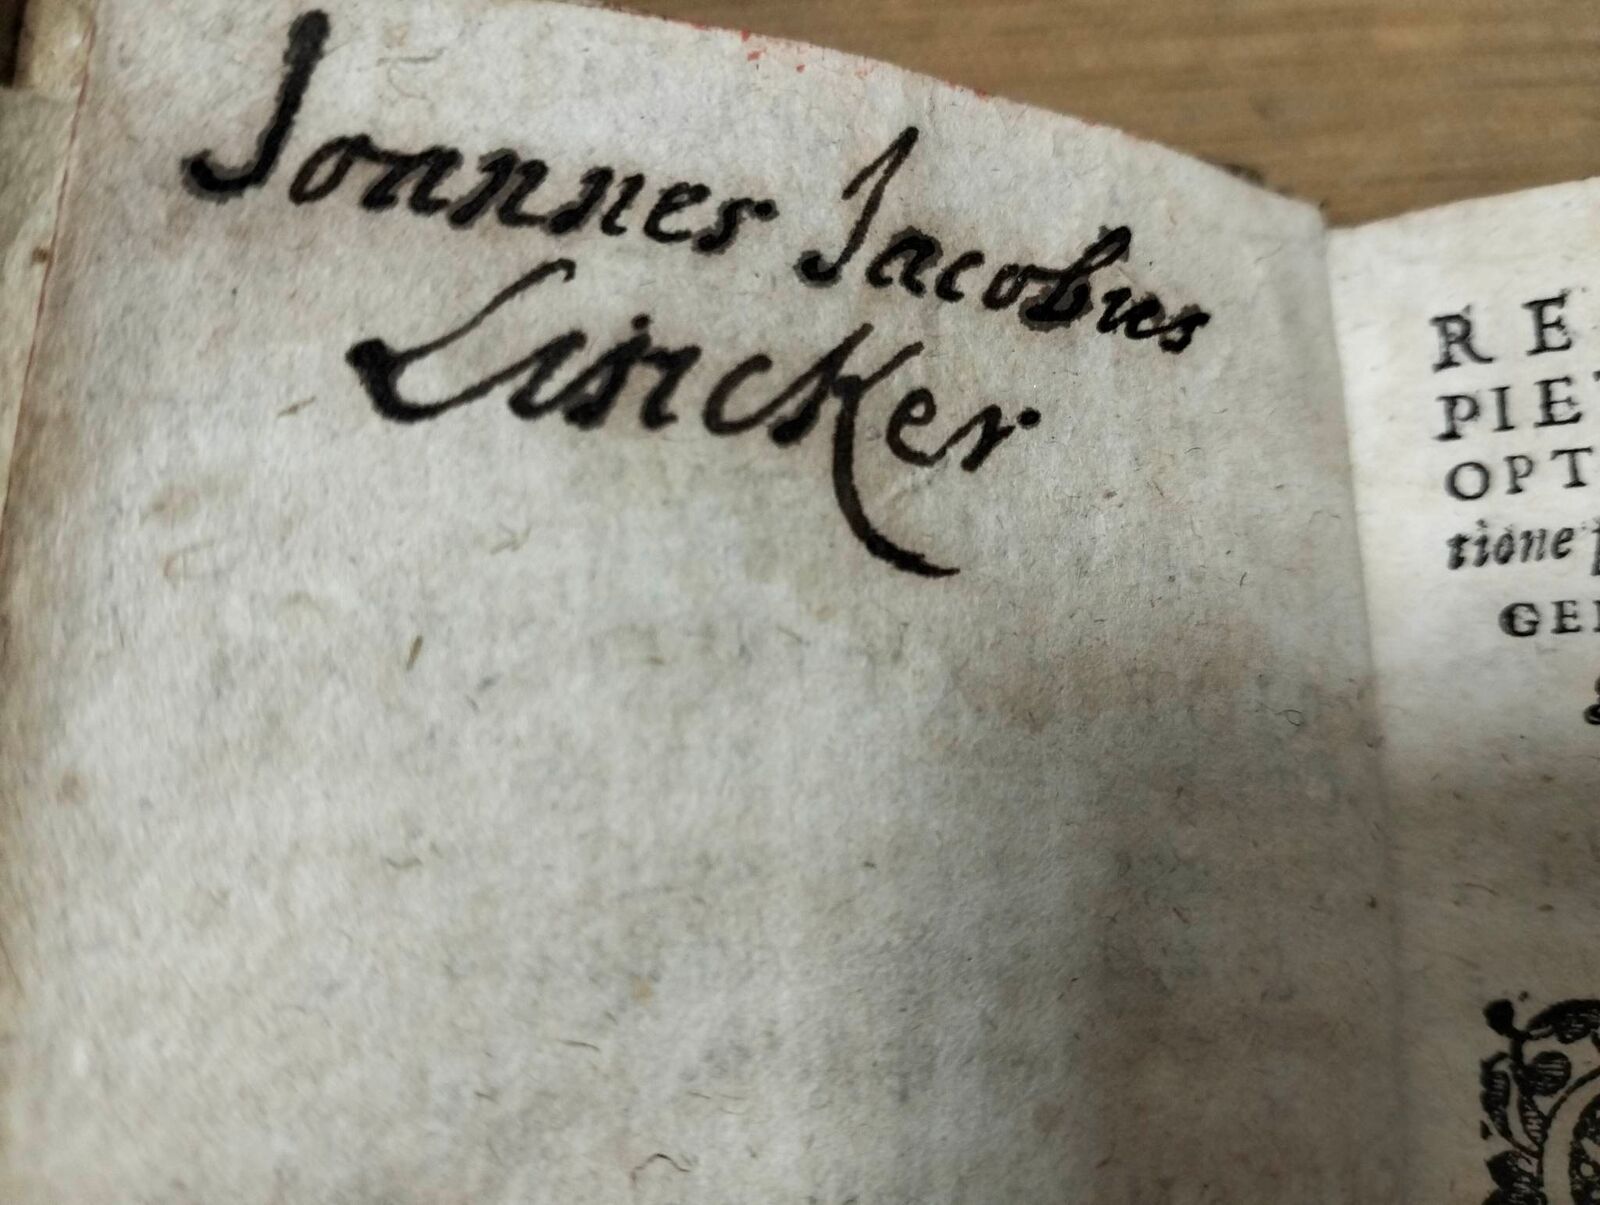 Joannes Jacobus
Lincker
RE
PIE
OPT
tione
GE